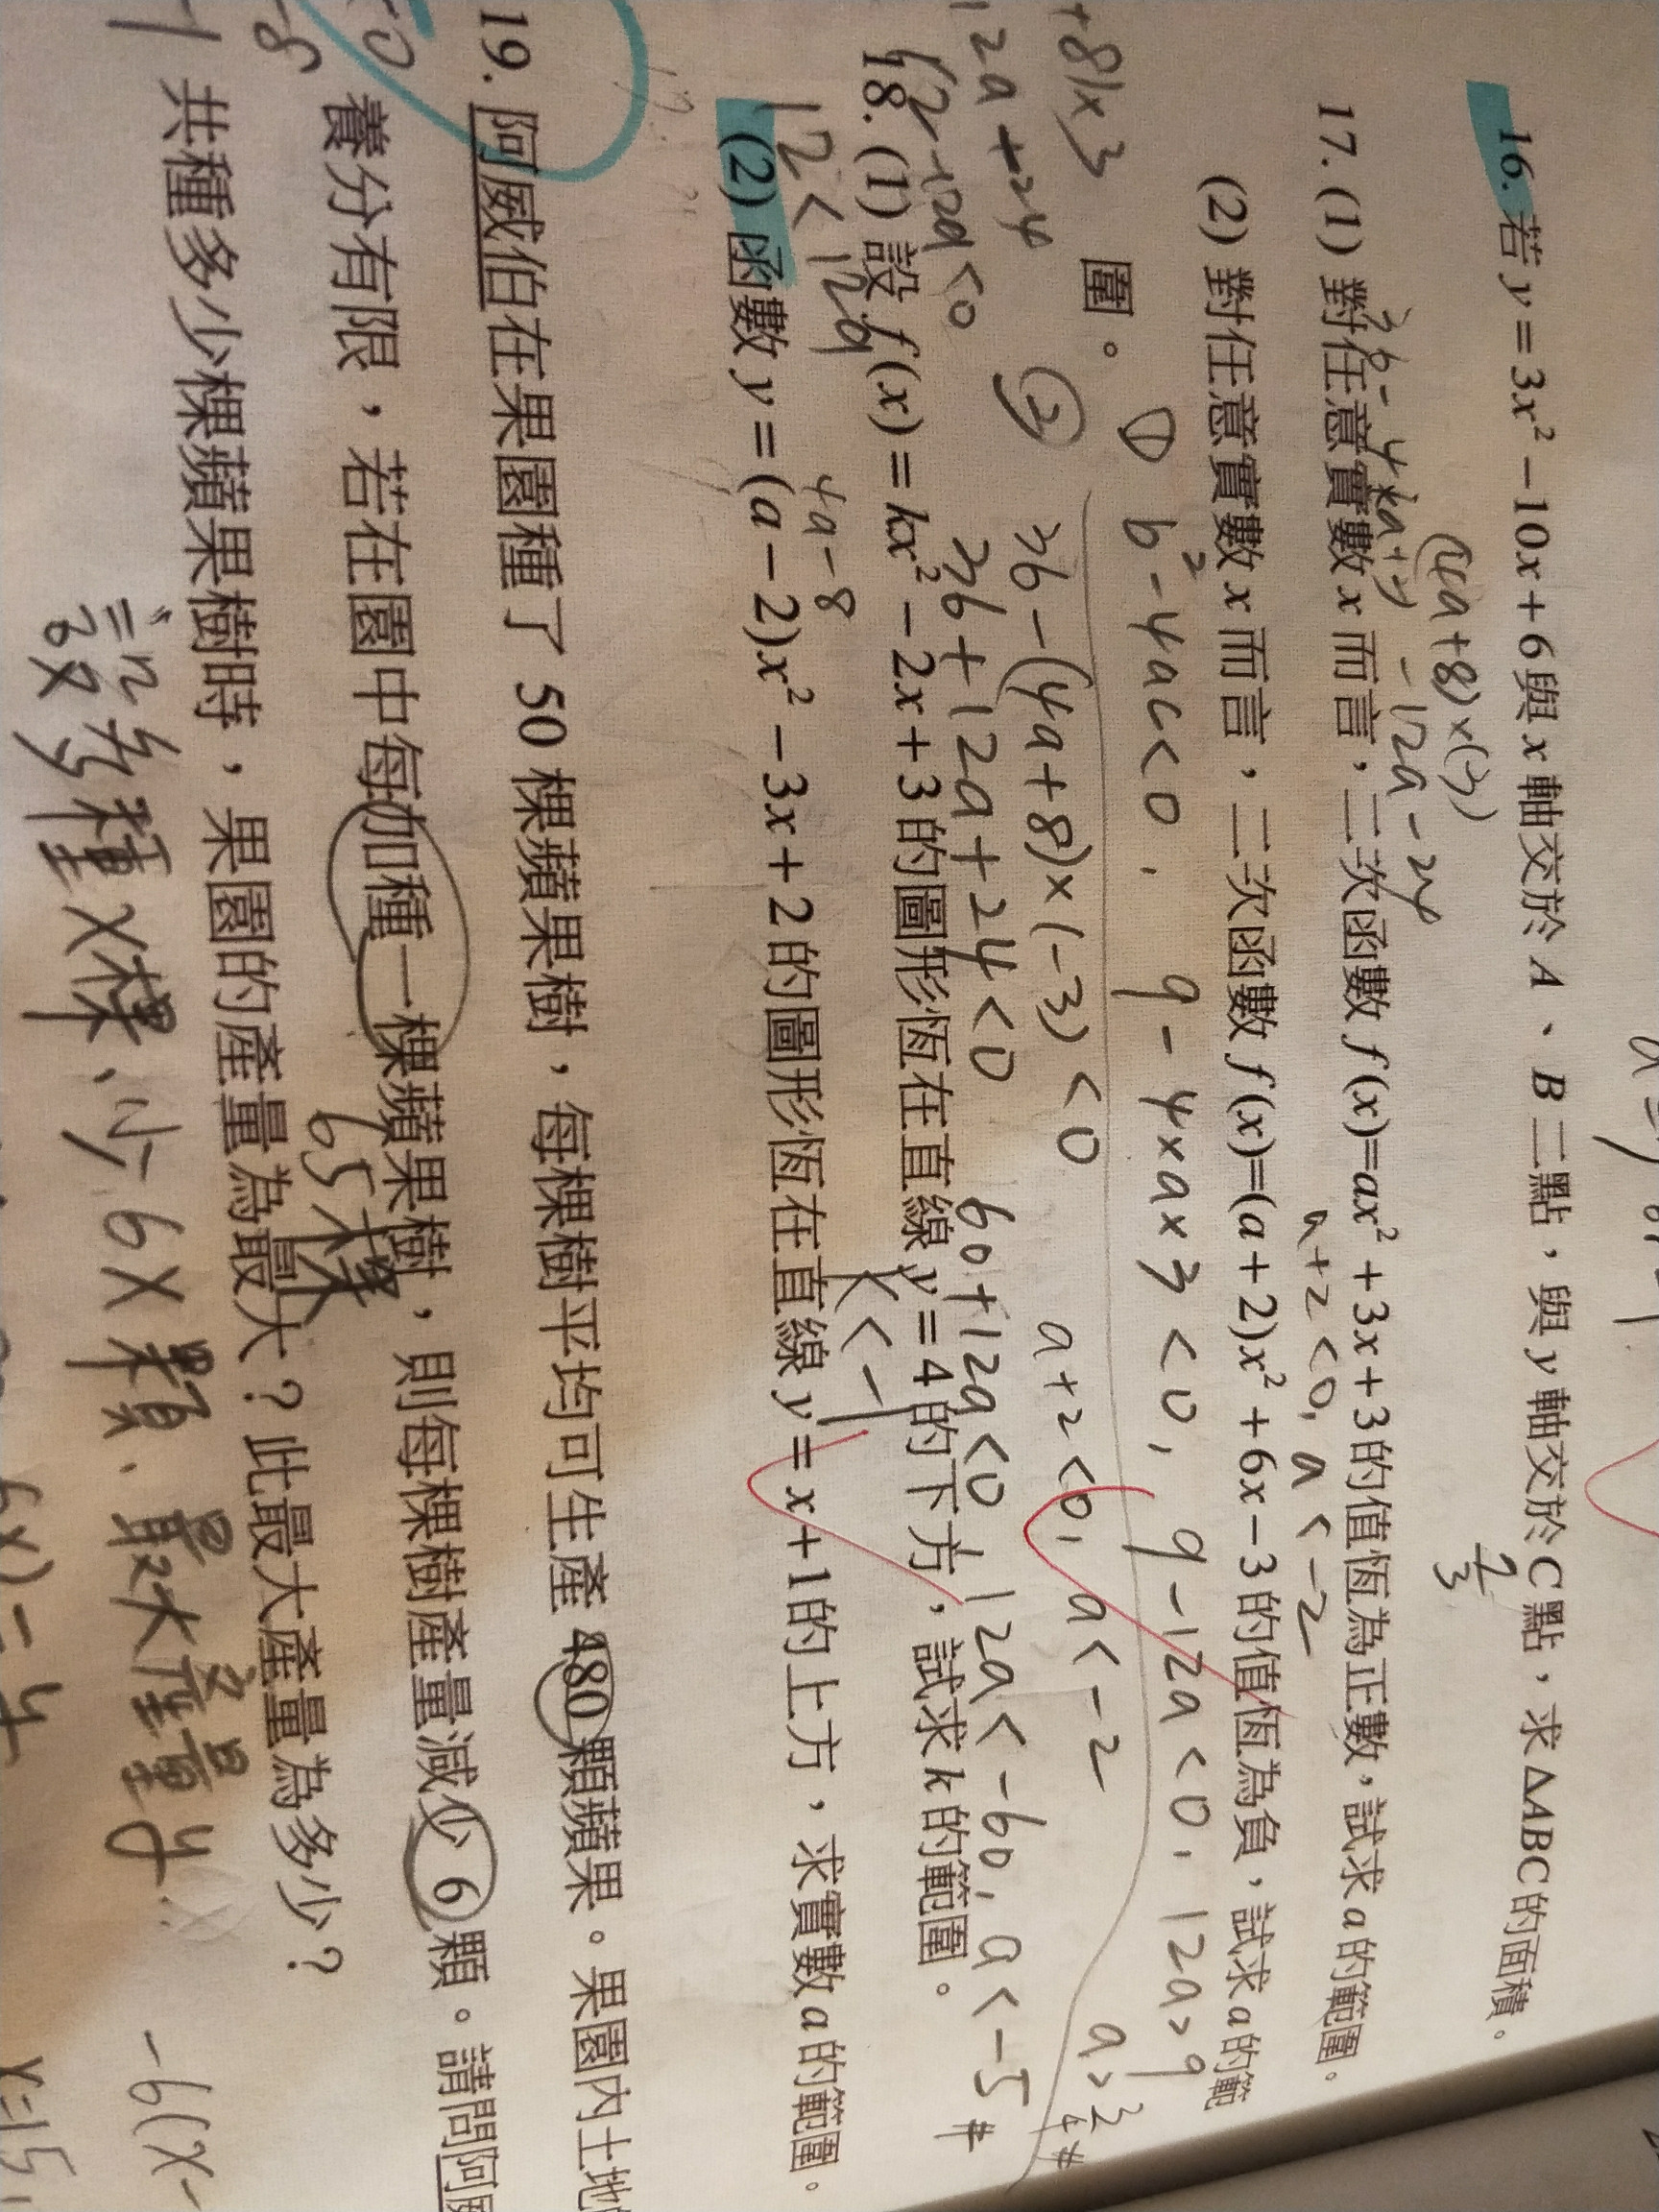 16. 若 y = 3x² − 10x + 6 與 x 軸交於 A 、 B 二點，與 y 軸交於 C 點，求 △ABC 的面積。
(4a+8)×(-3)
-12a-24
17. (1) 對任意實數 x 而言，二次函數 f(x)=ax² + 3x + 3 的值恆為正數，試求 a 的範圍。
a+2<0, a<-2
(2) 對任意實數 x 而言，二次函數 f(x)=(a + 2)x² + 6x − 3 的值恆為負，試求 a 的範
圍。
① b²-4ac<0, 9-4×a×3<0, 9-12a<0, 12a>9
a>3/4 #
② 36-(4a+8)×(-3)<0 a+2<0, a<-2
36+12a+24<0 60+12a<0 12a<-60, a<-5 #
18. (1) 設 f(x) = kx² − 2x + 3 的圖形恆在直線 y = 4 的下方，試求 k 的範圍。
12<12a
4a-8
k<-1
(2) 函數 y = (a − 2)x² − 3x + 2 的圖形恆在直線 y = x + 1 的上方，求實數 a 的範圍。
19. 阿威伯在果園種了 50 棵蘋果樹，每棵樹平均可生產 480 顆蘋果。果園內土地
養分有限，若在園中每加種一棵蘋果樹，則每棵樹產量減少 6 顆。請問阿
65棵
共種多少棵蘋果樹時，果園的產量為最大？此最大產量為多少？
設多種x棵、少6x顆、最大產量y
-6(x-
x=15